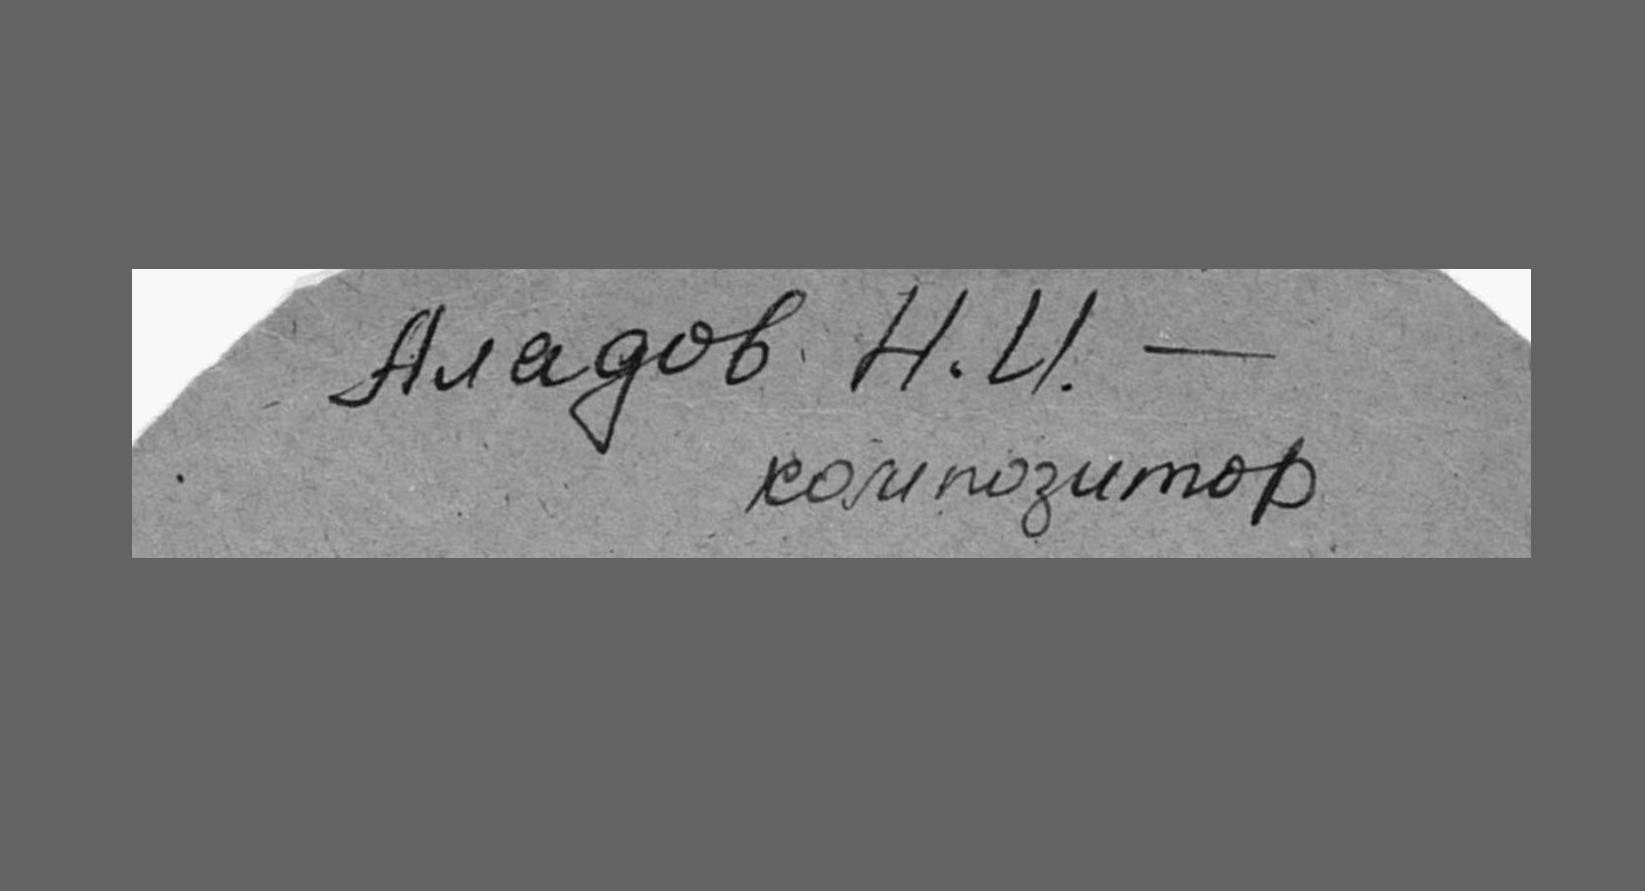 Аладов Н.И. —
композитор